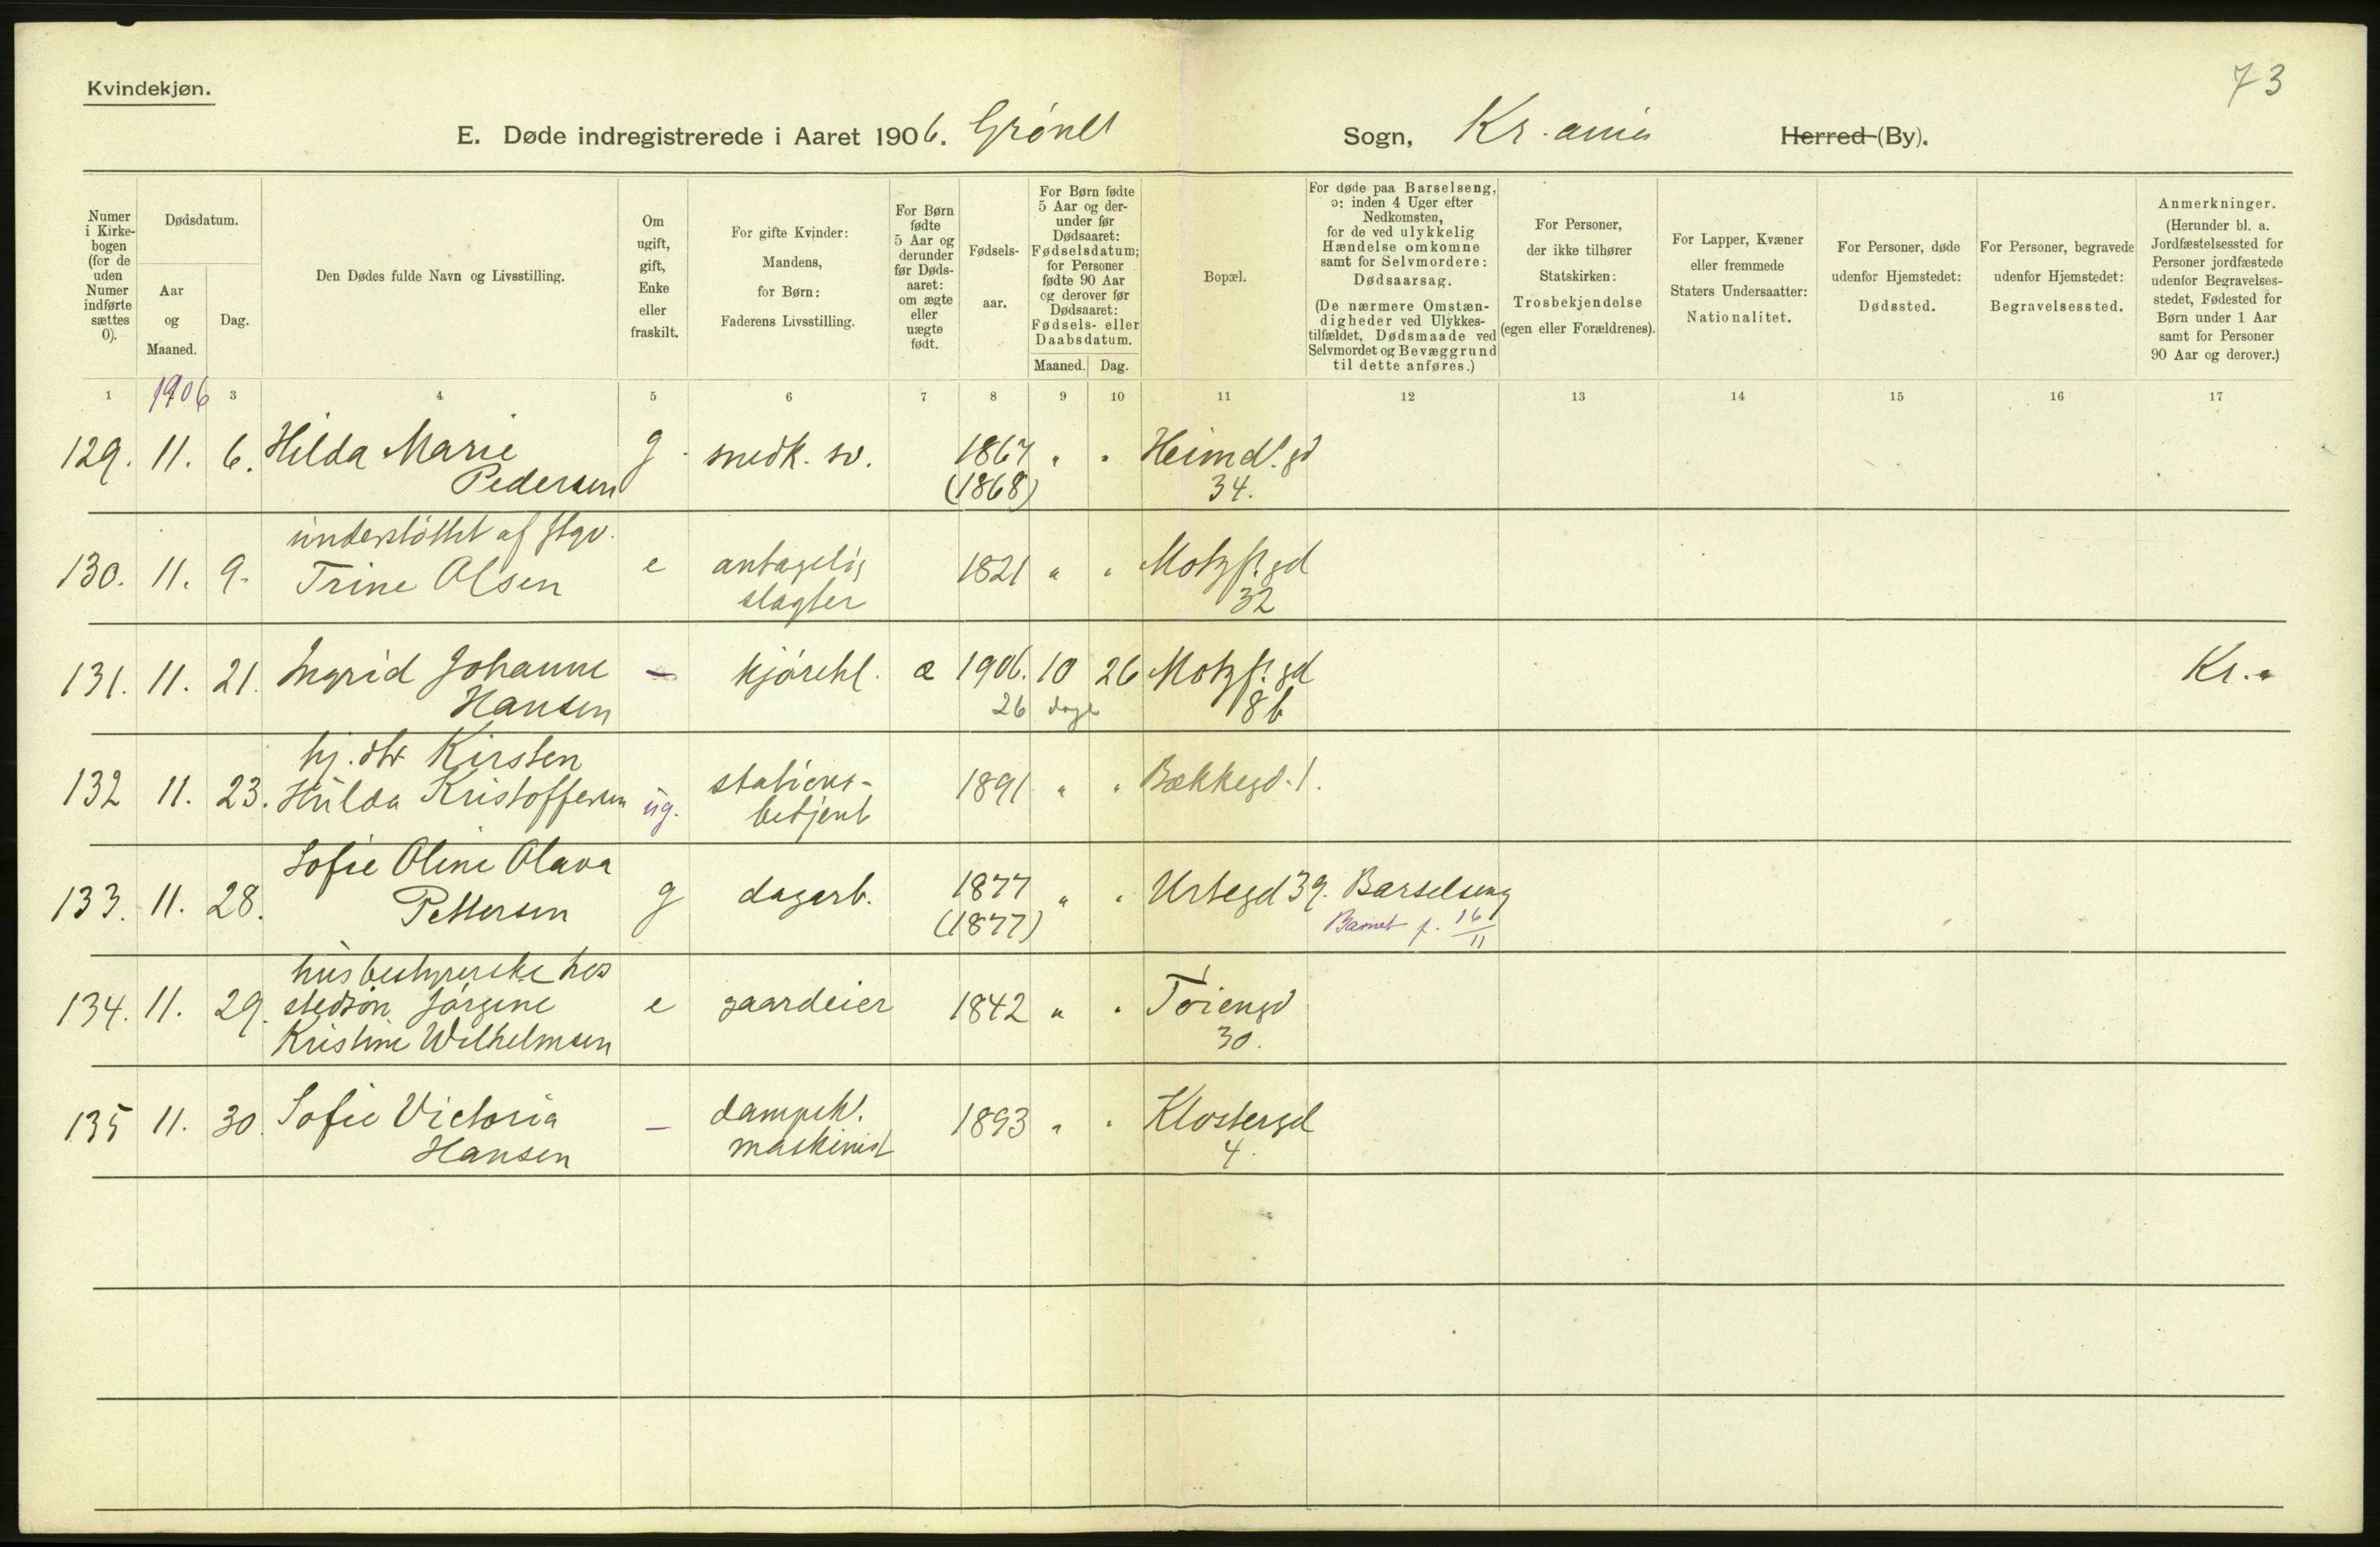 Kvindekjøn.
73
E. Døde indregistrerede i Aaret 1906. Grønl Sogn, Kr.ania Herred (By).
Numer i Kirkebogen (for de uden Numer indførte sættes 0).
Dødsdatum.
Aar og Maaned.
Dag.
Den Dødes fulde Navn og Livsstilling.
Om ugift, gift, Enke eller fraskilt.
For gifte Kvinder: Mandens, for Børn: Faderens Livsstilling.
For Børn fødte 5 Aar og derunder før Dødsaaret: om ægte eller uægte født.
Fødselsaar.
For Børn fødte 5 Aar og derunder før Dødsaaret: Fødselsdatum; for Personer fødte 90 Aar og derover før Dødsaaret: Fødsels- eller Daabsdatum.
Maaned. Dag.
Bopæl.
For døde paa Barselseng, ɔ: inden 4 Uger efter Nedkomsten, for de ved ulykkelig Hændelse omkomne samt for Selvmordere: Dødsaarsag. (De nærmere Omstændigheder ved Ulykkestilfældet, Dødsmaade ved Selvmordet og Bevæggrund til dette anføres.)
For Personer, der ikke tilhører Statskirken: Trosbekjendelse (egen eller Forældrenes).
For Lapper, Kvæner eller fremmede Staters Undersaatter: Nationalitet.
For Personer, døde udenfor Hjemstedet: Dødssted.
For Personer, begravede udenfor Hjemstedet: Begravelsessted.
Anmerkninger. (Herunder bl. a. Jordfæstelsessted for Personer jordfæstede udenfor Begravelsesstedet, Fødested for Børn under 1 Aar samt for Personer 90 Aar og derover.)
1 1906 3 4 5 6 7 8 9 10 11 12 13 14 15 16 17
129. 11. 6. Hilda Marie g. snedk. sv. 1867 " " Heimd!. gd
Pedersen (1868) 34.
understøttet af ftgv.
130. 11. 9. Trine Olsen e antagelig 1821 " " Motzf!. gd
slagter 32
131. 11. 21. Ingrid Johanne — kjørekl. æ 1906. 10 26 Motzf!. gd Kr.a
Hansen 26 dage 8b
hj. dtr Kirsten
132 11. 23. Hulda Kristoffersen ug. stations- 1891 " " Bækkegd. 1.
betjent
Sofie Oline Olava
133. 11. 28. Pettersen g dagarb. 1877 " " Urtegd 39. Barselseng
(1877) Barnet f. 16/11
husbestyrerske hos
134. 11. 29. stedsøn Jørgine e gaardeier 1842 " " Tøiengd
Kristine Wilhelmsen 30.
135 11. 30. Sofie Victoria — dampsk!. 1893 " " Klostergd
Hansen maskinist 4.